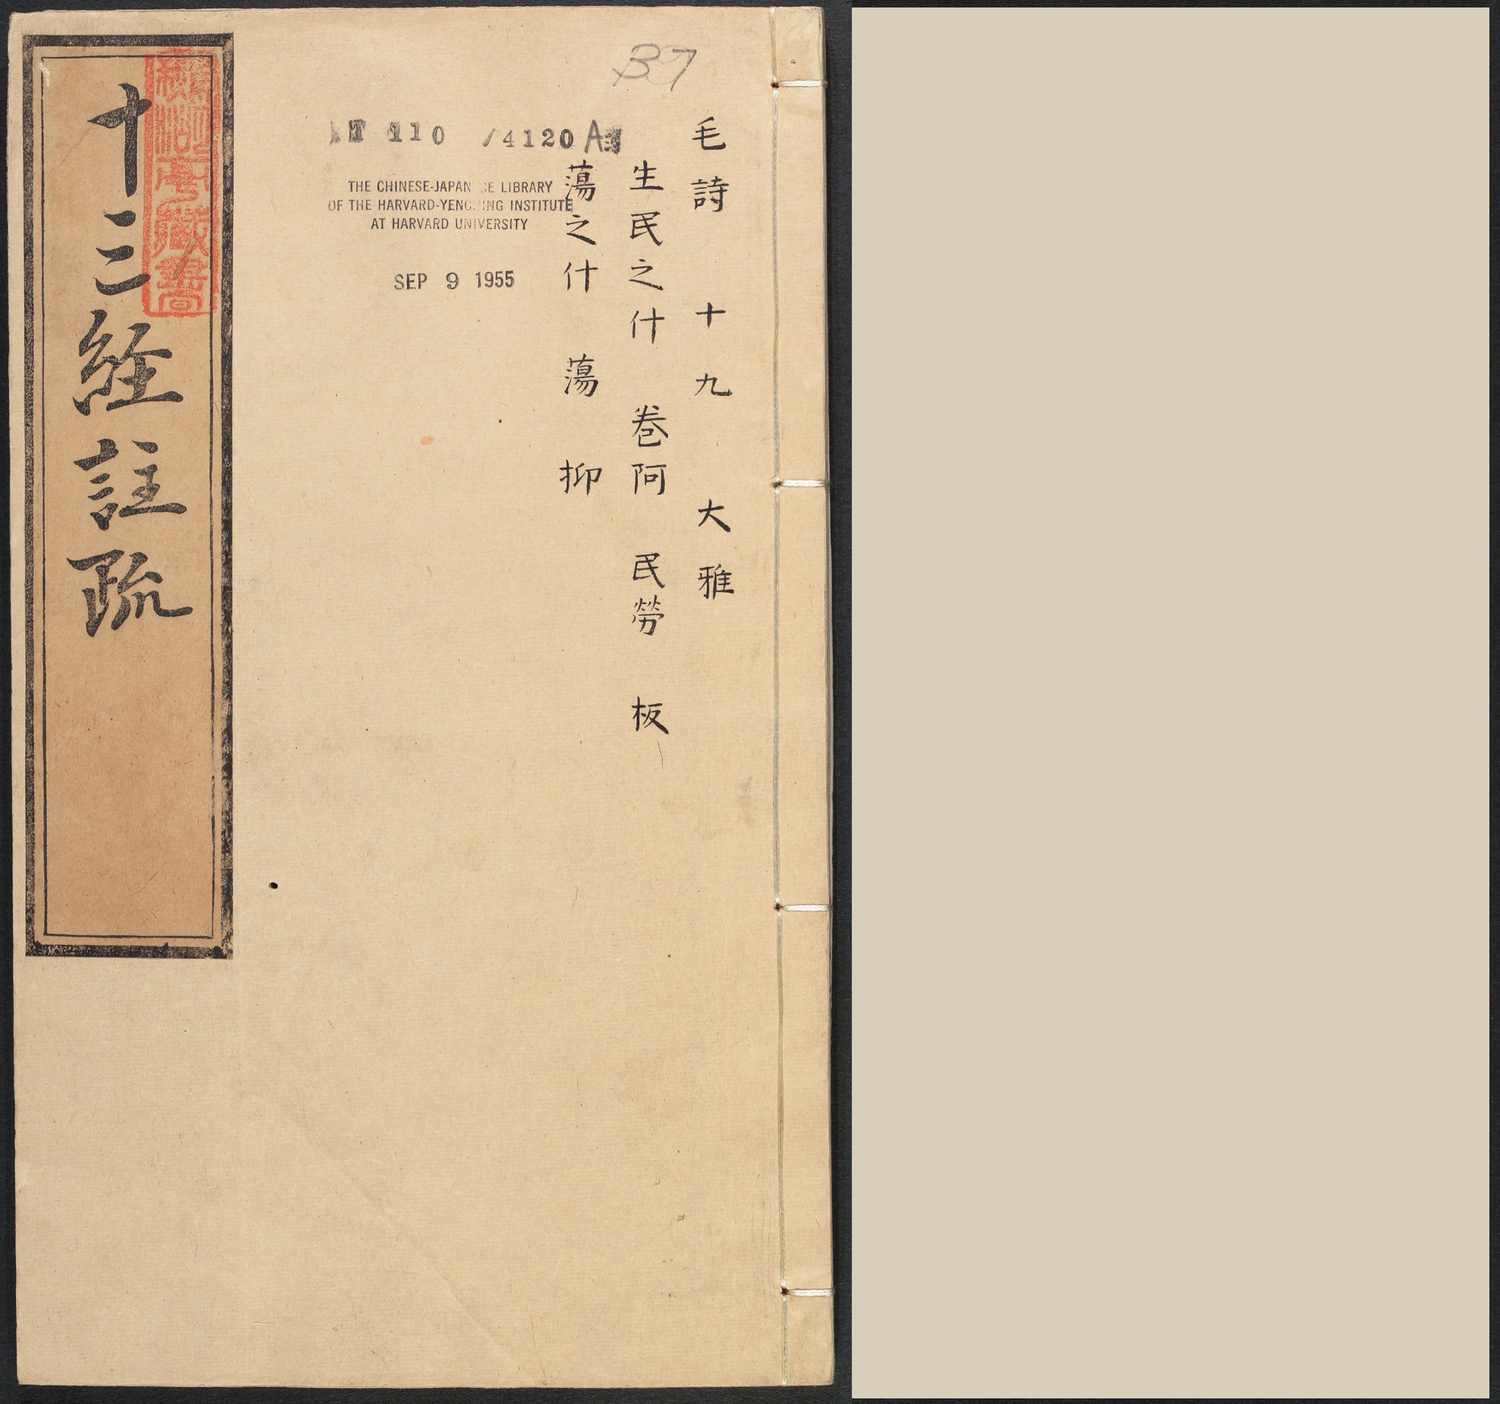 37
毛詩 十九 大雅
生民之什 卷阿 民勞 板
蕩之什 蕩 抑
T 110 /4120 A
THE CHINESE-JAPAN E LIBRARY
OF THE HARVARD-YENC ING INSTITUTE
AT HARVARD UNIVERSITY
SEP 9 1955
十三経註疏